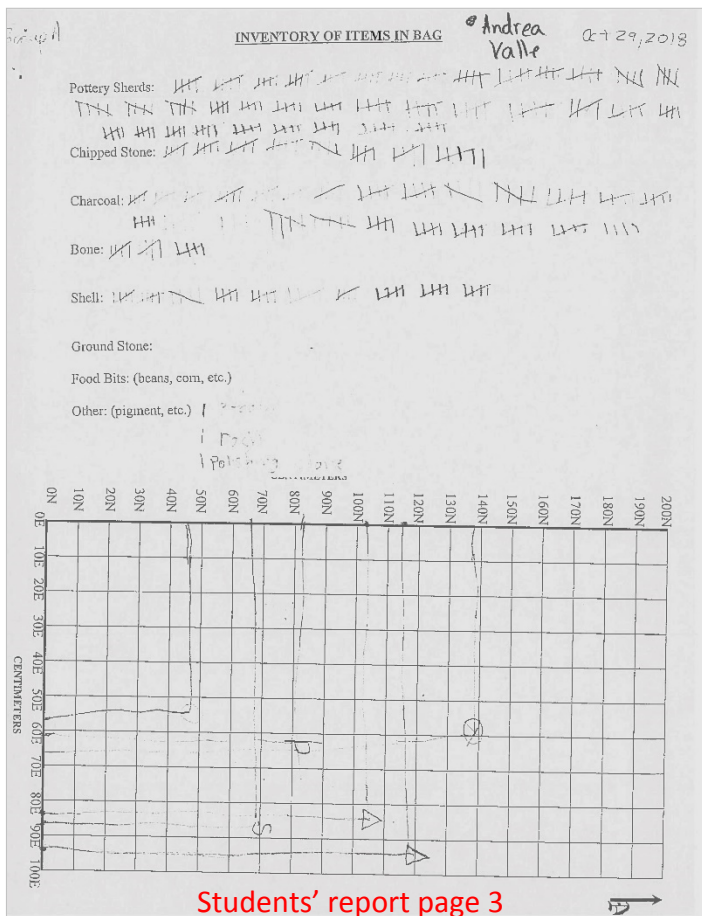 Group A
INVENTORY OF ITEMS IN BAG
Andrea
Valle
Oct 29, 2018
Pottery Sherds:
Chipped Stone:
Charcoal:
Bone:
Shell:
Ground Stone:
Food Bits: (beans, corn, etc.)
Other: (pigment, etc.) 1
1 rock
1
CENTIMETERS
0N 10N 20N 30N 40N 50N 60N 70N 80N 90N 100N 110N 120N 130N 140N 150N 160N 170N 180N 190N 200N
0E
10E
20E
30E
40E
50E
60E
70E
80E
90E
100E
CENTIMETERS
P
S
Students' report page 3